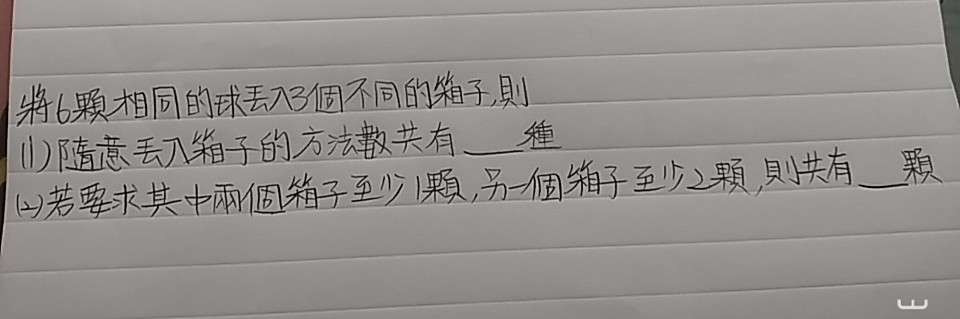 將6顆相同的球丟入3個不同的箱子,則
(1)隨意丟入箱子的方法數共有___種
(2)若要求其中兩個箱子至少1顆,另一個箱子至少2顆,則共有__顆